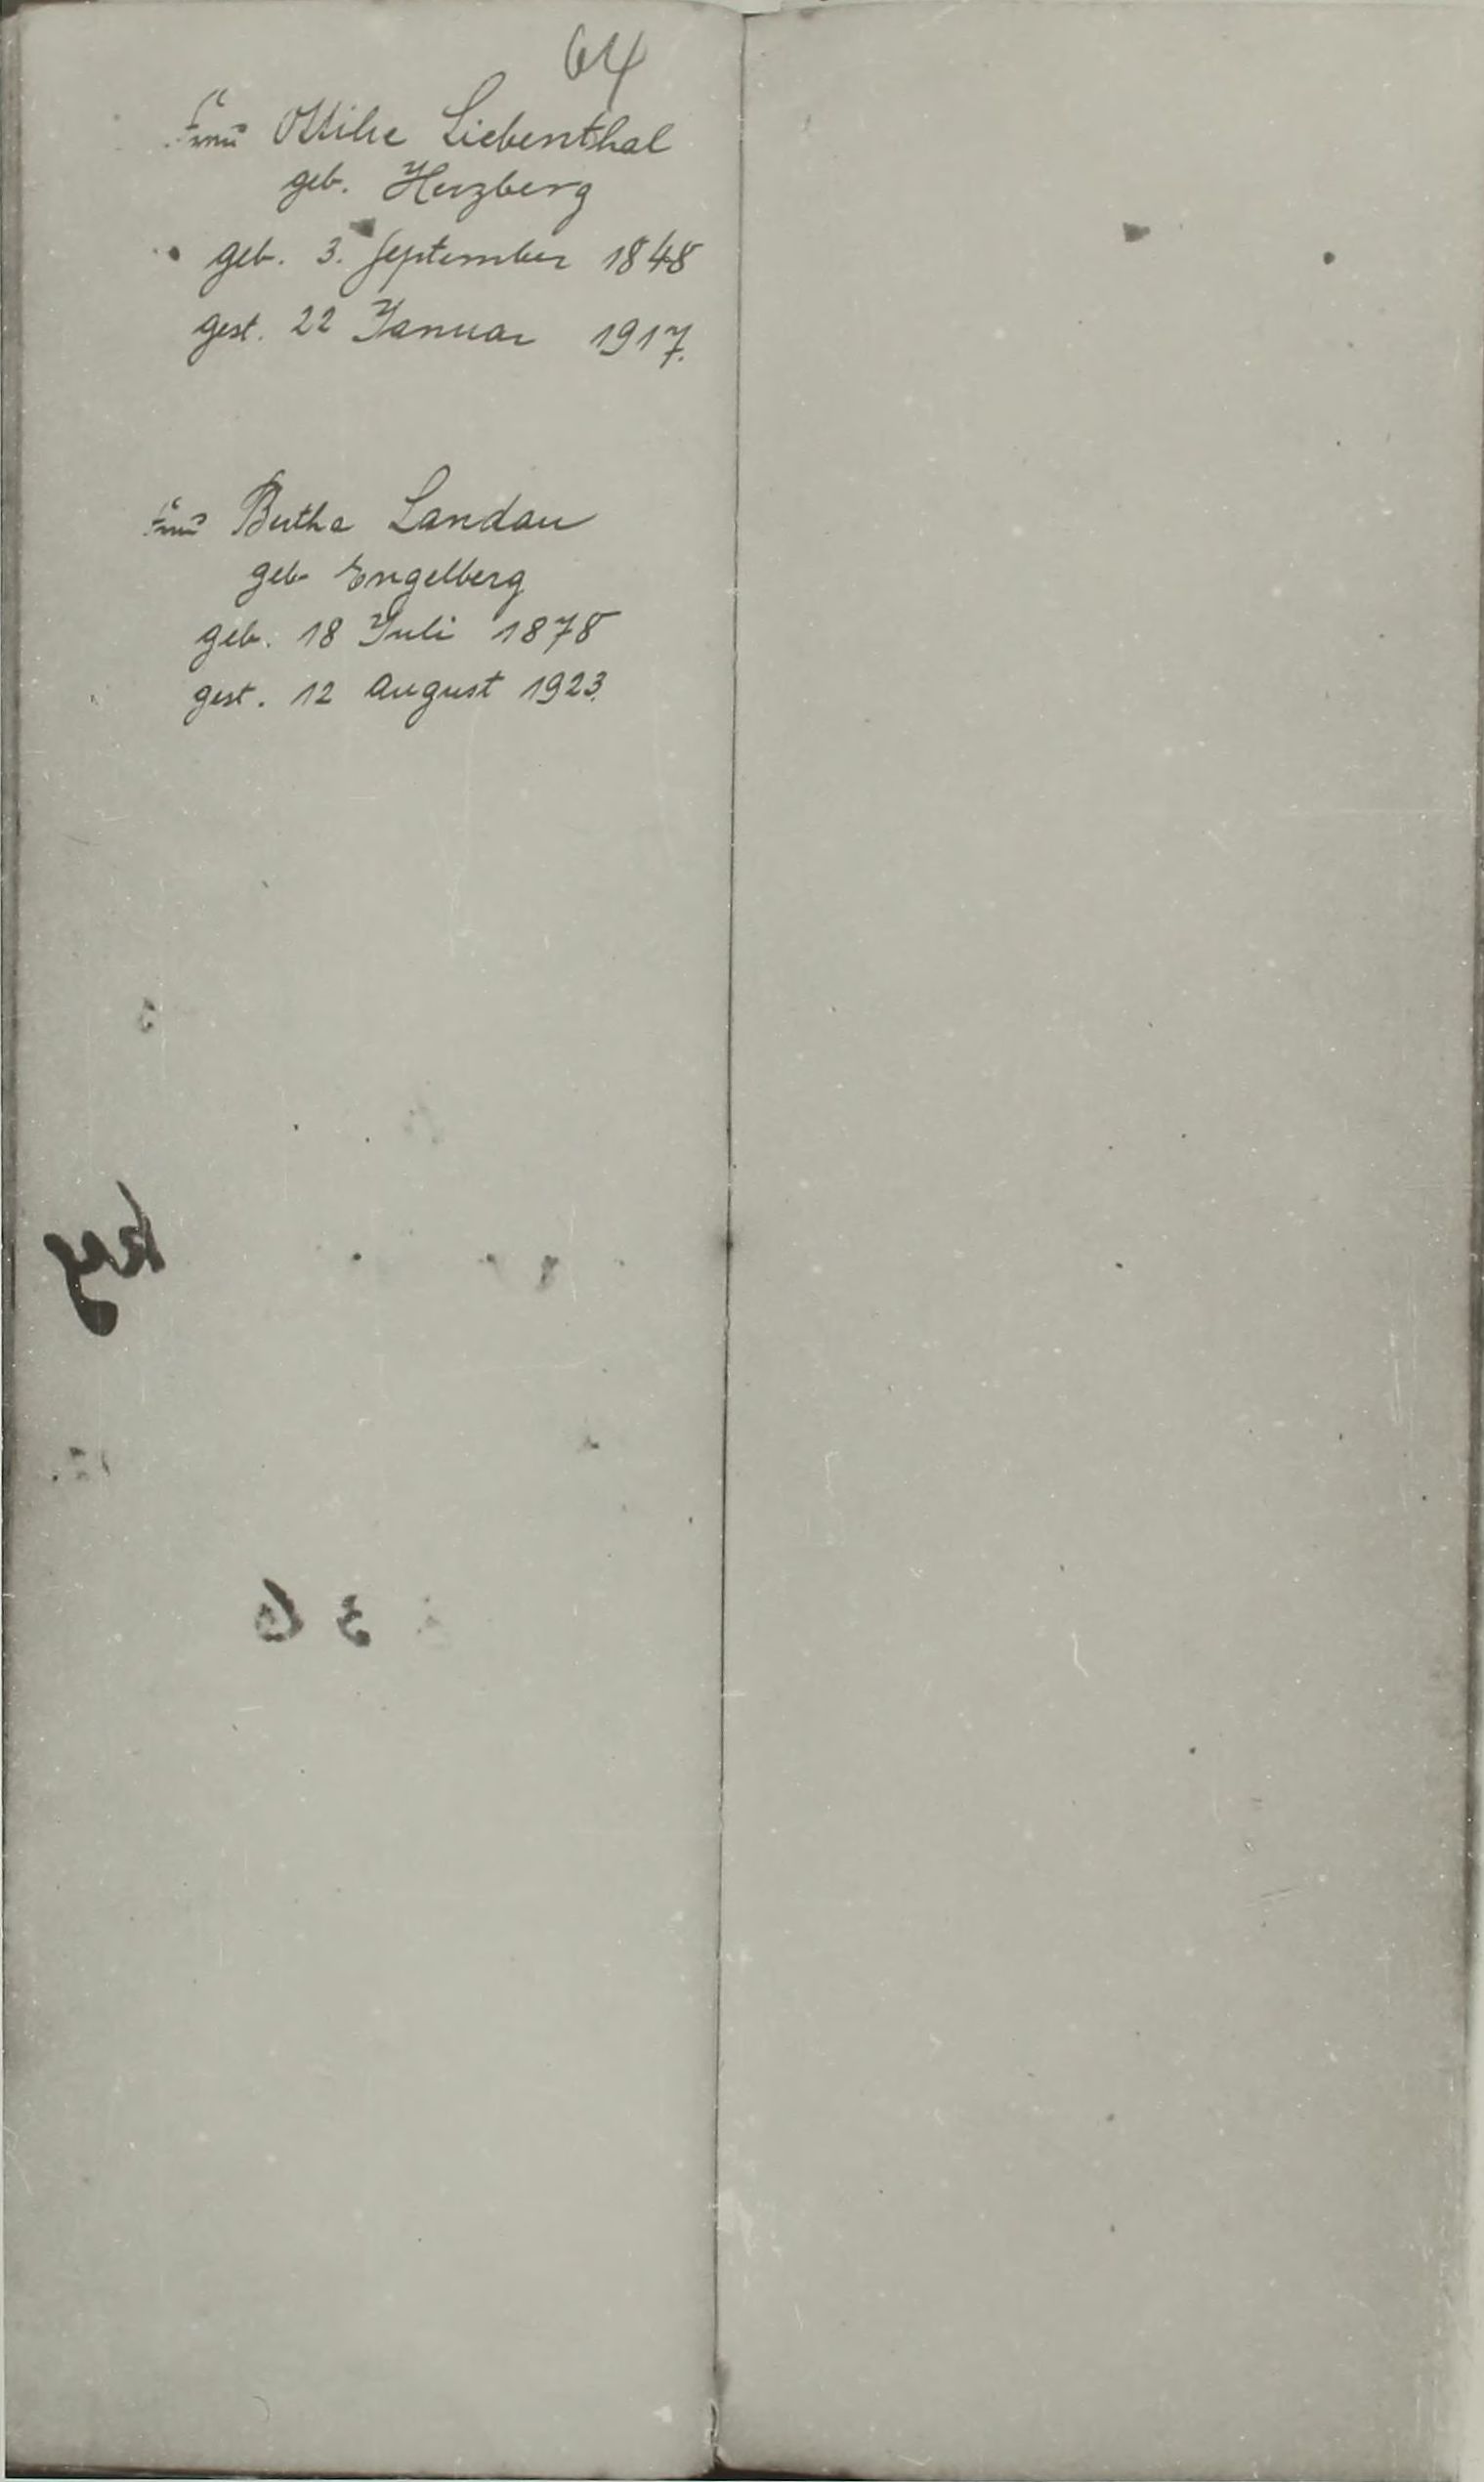 64
Frau Ottilie Liebenthal
geb. Herzberg
geb. 3. September 1848
gest. 22 Januar 1917.
Frau Bertha Landau
geb Engelberg
geb. 18 Juli 1878
gest. 12 August 1923.